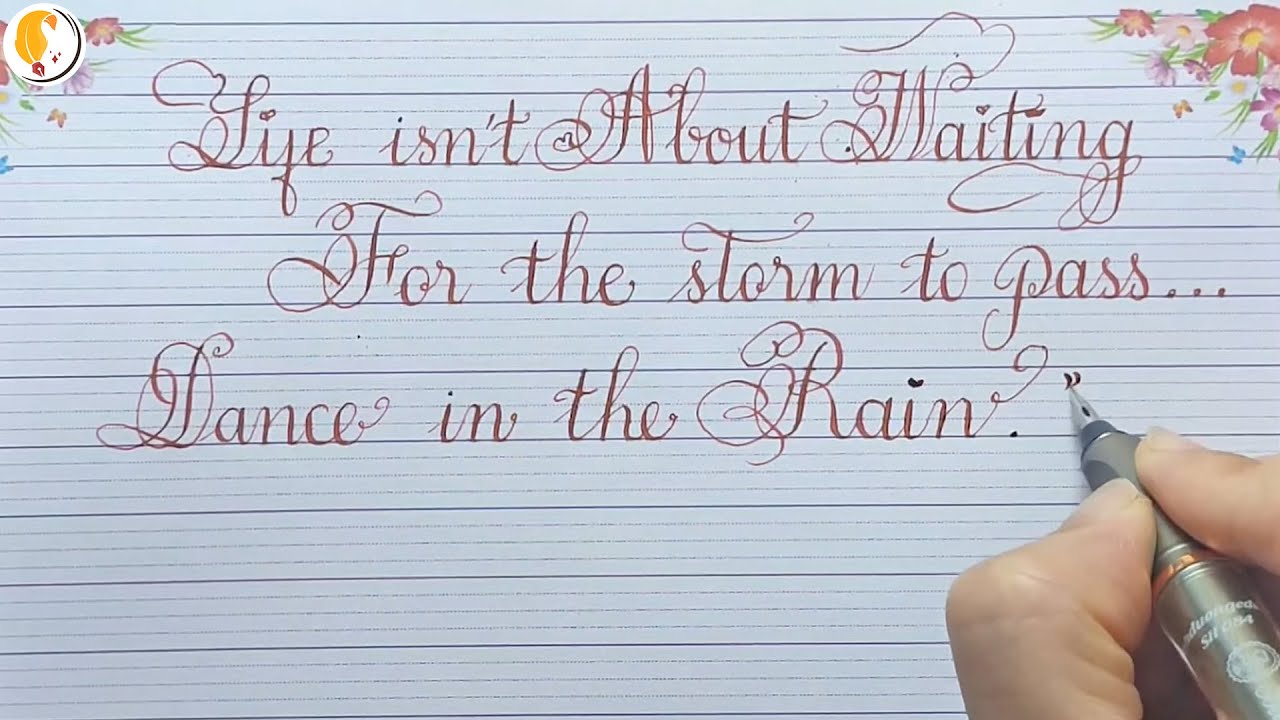 Life isn't About Waiting
For the storm to pass...
Dance in the Rain."
SH 084